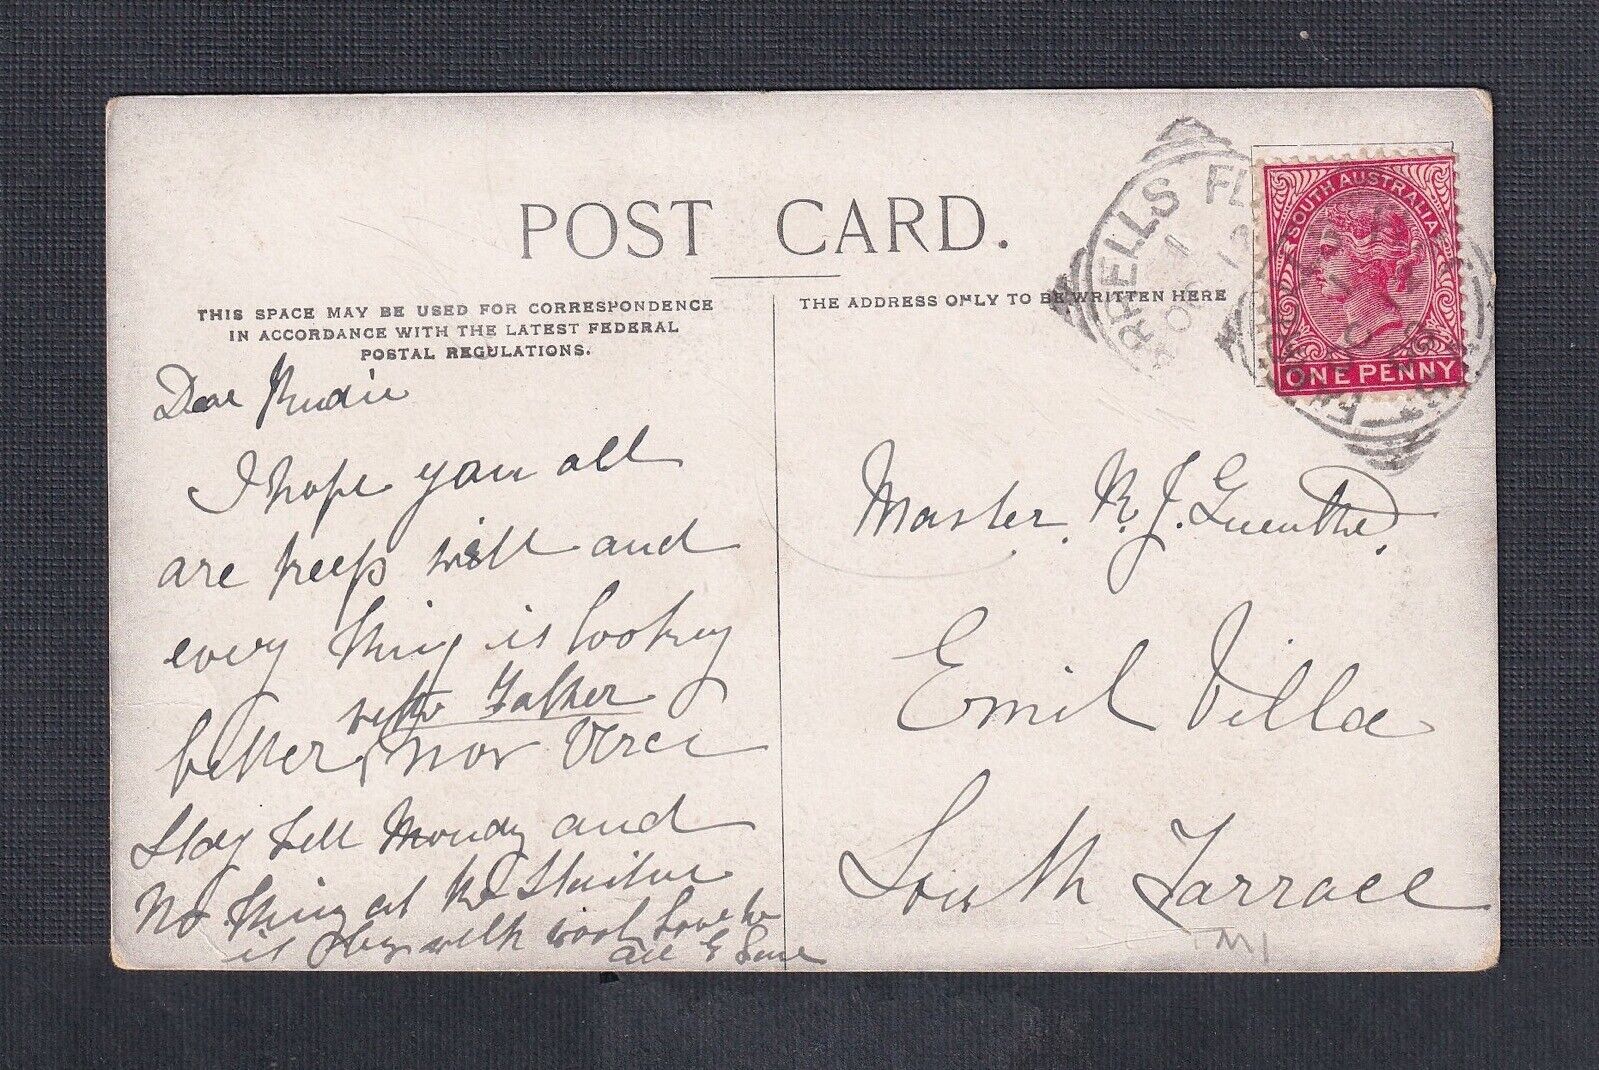 POST CARD.
THIS SPACE MAY BE USED FOR CORRESPONDENCE
IN ACCORDANCE WITH THE LATEST FEDERAL
POSTAL REGULATIONS.
THE ADDRESS ONLY TO BE WRITTEN HERE
SOUTH AUSTRALIA
ONE PENNY
RRELLS FL
Dear Rudie
I hope you all
are keep well and
every thing is looking
with Father
better
Stay till Monday and
No thing at the
is with wool Love to
all
Master. R. J. Guenther.
Emil Villa
South Tarrace